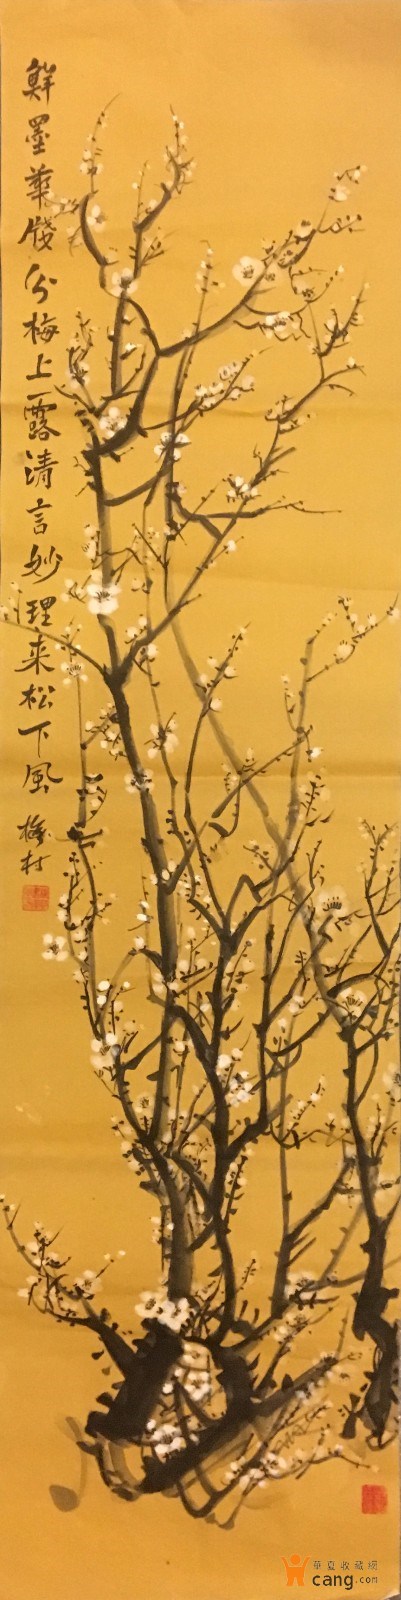 鲜墨華牋分梅上露清言妙理来松下風
梅村
華夏收藏網
cang.com